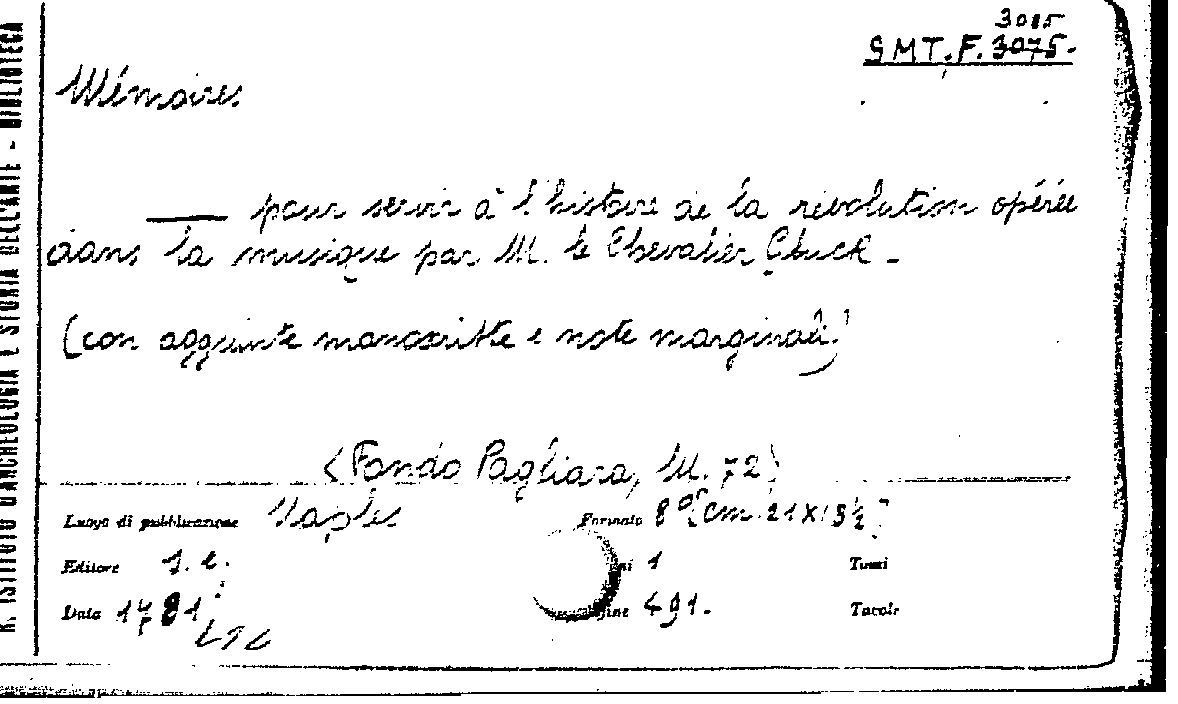 3085
SMT.F. 3075.
Mémoires
pour servir à l'histoire de la révolution opérée
dans la musique par M. le Chevalier Gluck.
(con aggiunte manoscritte e note marginali)
(Fondo Pagliara, M. 72)
Luogo di pubblicazione Naples
Formato 8° [cm. 21 X 13½]
Editore s. e.
1
Tomi
Data 1781
491.
Tavole
R. ISTITUTO D'ARCHEOLOGIA E STORIA DELL'ARTE - BIBLIOTECA